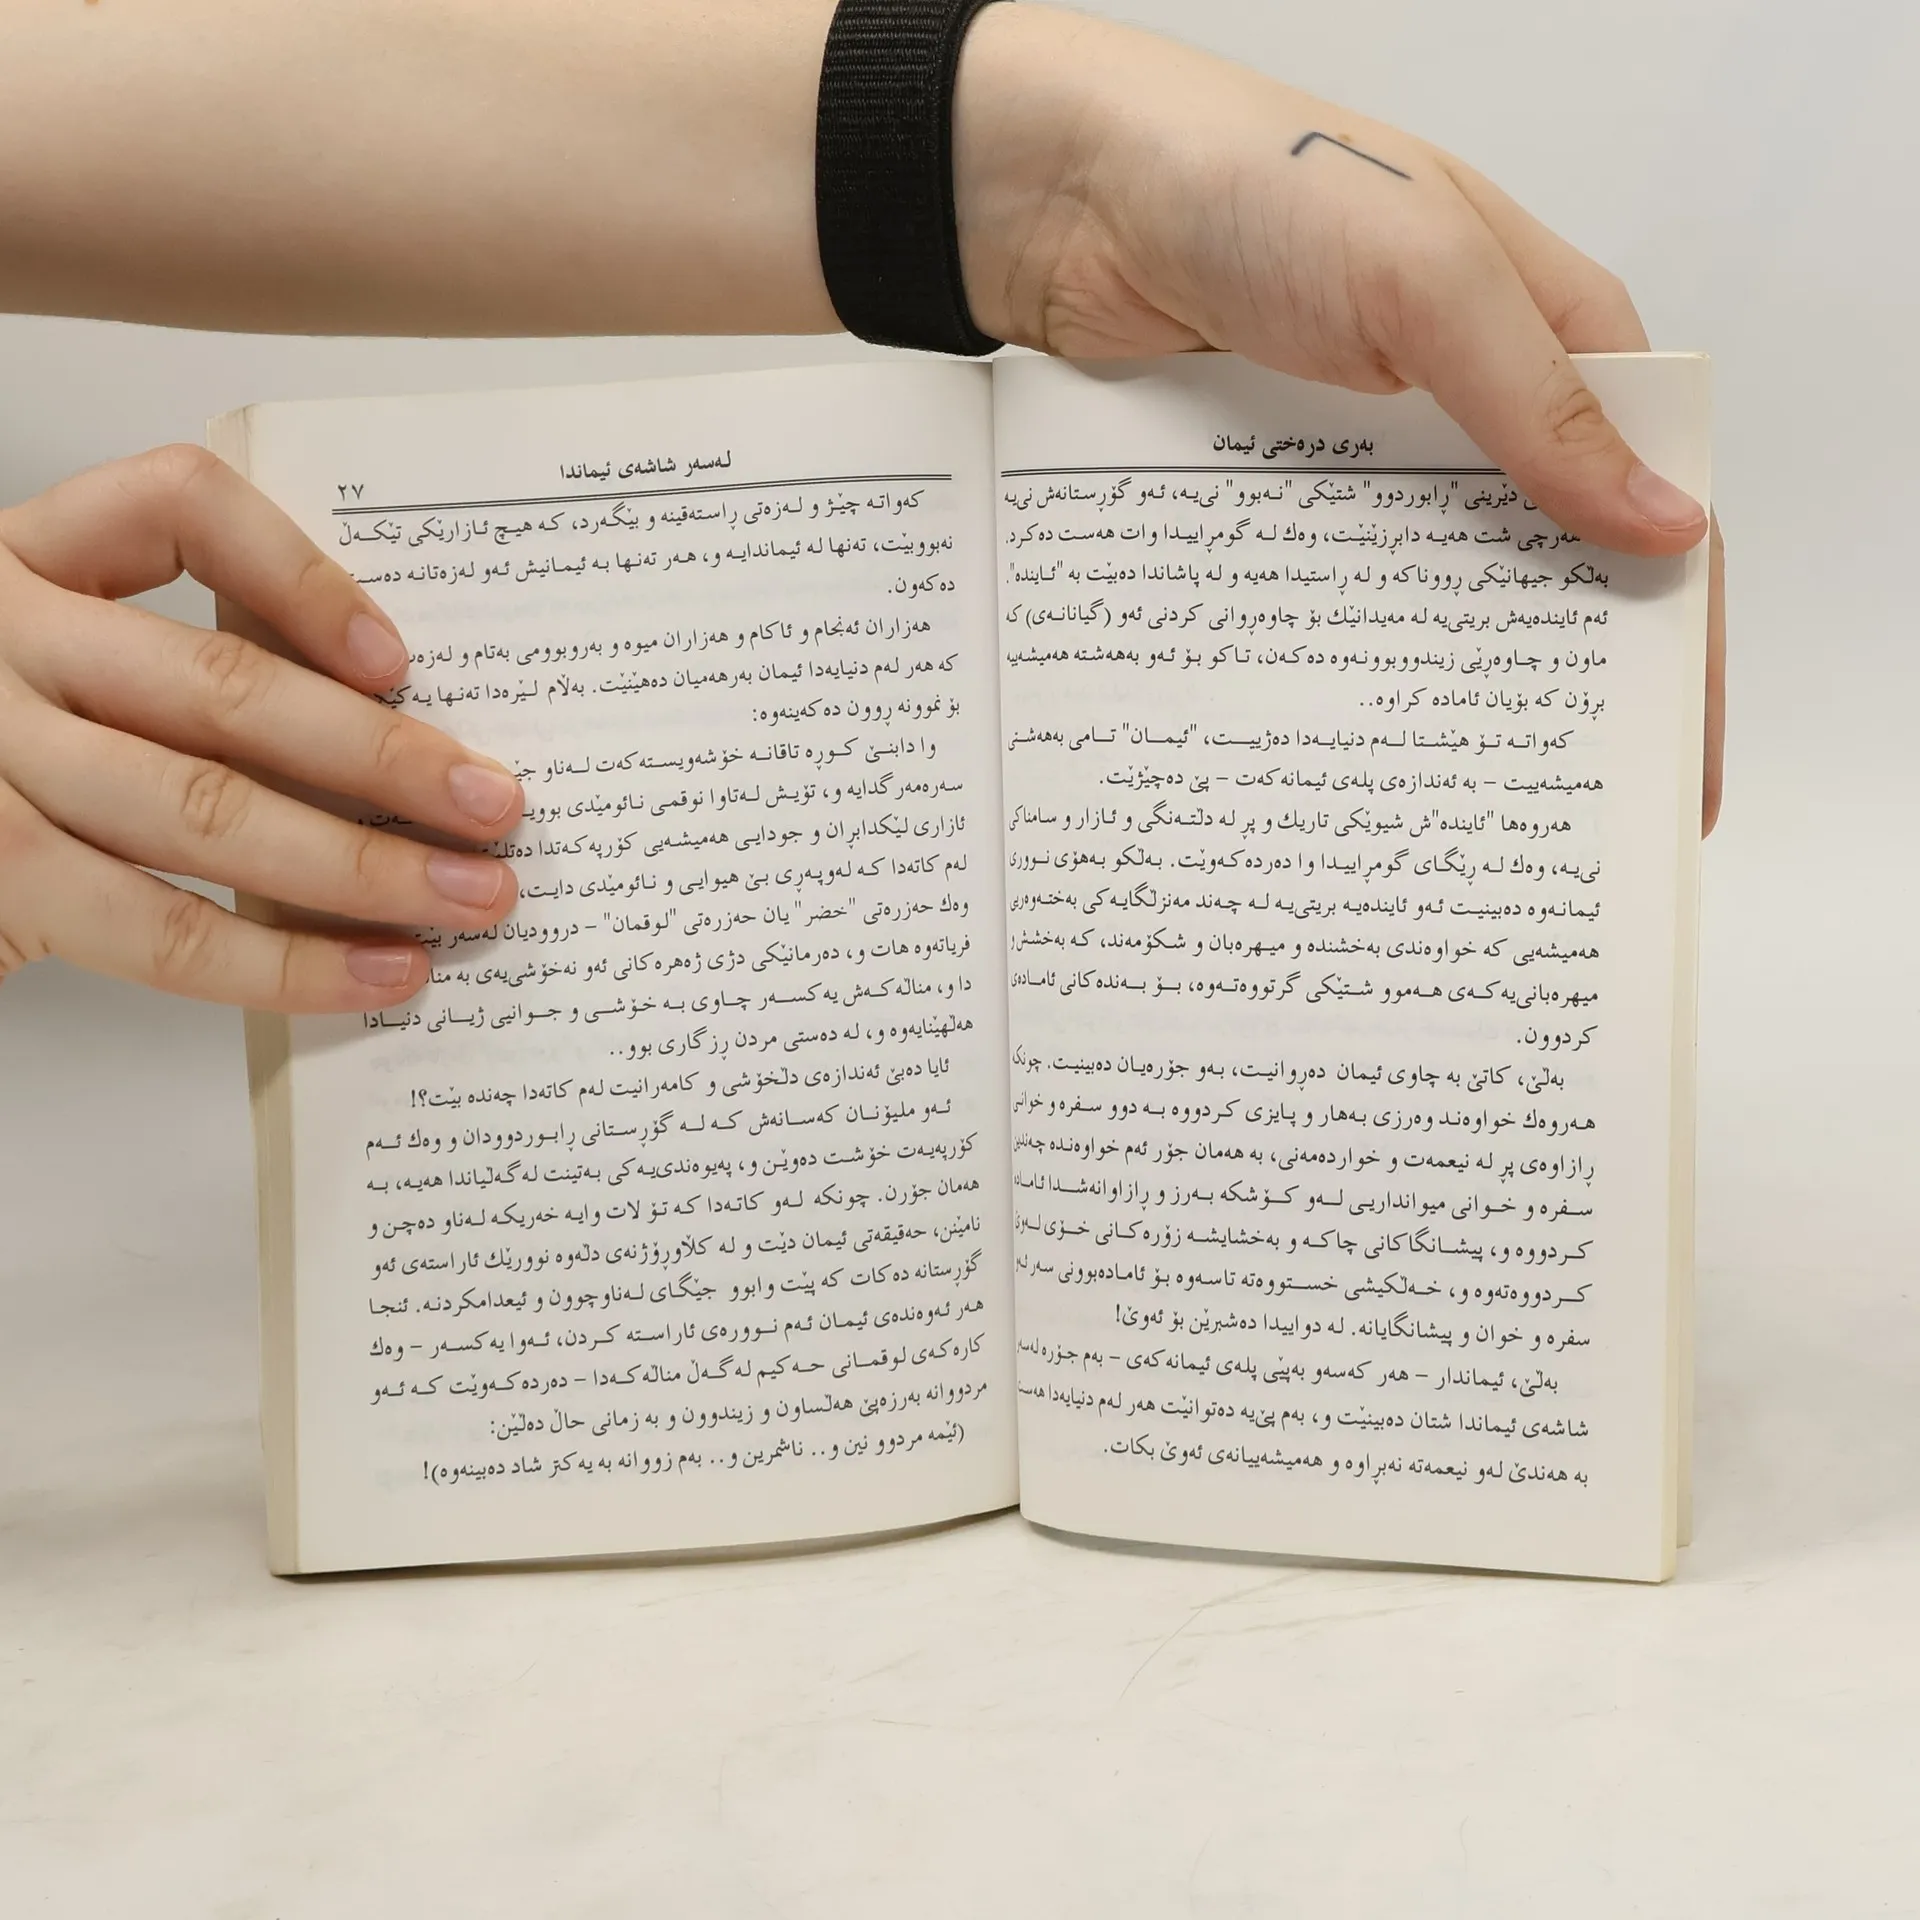 بەری درەختی ئیمان
دێرینی "ڕابوردوو" شتێکی "نـەبوو" نی‌یـە، ئـەو گۆڕستانەش نی‌یـە
هەرچی شت هەیـە دابڕزێنێـت، وەك لـە گومڕاییـدا وات هەست دەکرد.
بەڵکو جیهانێکی ڕووناکە و لە ڕاستیدا هەیە و لە پاشاندا دەبێت بە "ئـایندە".
ئەم ئایندەیەش بریتی‌یە لە مەیدانێك بۆ چاوەڕوانی کردنی ئەو (گیانانـەی) کە
ماون و چـاوەڕێی زیندووبوونـەوە دەکـەن، تـاکو بـۆ ئـەو بەهەشتە هەمیشەییە
بڕۆن کە بۆیان ئامادە کراوە..
کەواتـە تـۆ هێشـتا لـەم دنیایـەدا دەژییـت، "ئیمـان" تـامی بەهەشتی
هەمیشەییت – بە ئەندازەی پلەی ئیمانەکەت – پێ دەچێژێت.
هەروەها "ئایندە"ش شیوێکی تاریك و پڕ لە دڵتـەنگی و ئـازار و سامناکی
نی‌یـە، وەك لـە ڕێگـای گومڕاییـدا وا دەردەکـەوێت. بـەڵکو بـەهۆی نـووری
ئیمانـەوە دەبینیـت ئـەو ئایندەیـە بریتی‌یـە لـە چـەند مەنزڵگایـەکی بەختـەوەریی
هەمیشەیی کە خواوەندی بەخشندە و میـهرەبان و شـکۆمەند، کـە بەخشش و
میهرەبانی‌یەکـەی هـەموو شـتێکی گرتووەتـەوە، بـۆ بـەندەکانی ئامـادەی
کردوون.
بەڵێ، کاتێ بە چاوی ئیمان دەڕوانیـت، بـەو جۆرەیـان دەبینیـت. چونکە
هـەروەك خواوەنـد وەرزی بـەهار و پـایزی کـردووە بـە دوو سـفرە و خوانی
ڕازاوەی پڕ لە نیعمەت و خواردەمەنی، بە هەمان جۆر ئەم خواوەندە چەندین
سـفرە و خـوانی میوانداریی لـەو کـۆشکە بـەرز و ڕازاوانەشـدا ئامـادە
کـردووە و، پیشـانگاکانی چاکـە و بەخشایشـە زۆرەکـانی خـۆی لـەوێ
کـردووەتەوە و، خـەڵکیشی خسـتووەتە تاسـەوە بـۆ ئامـادەبوونی سەر لەو
سفرە و خوان و پیشانگایانە. لە دواییدا دەشبرێن بۆ ئەوێ!
بەڵێ، ئیماندار – هەر کەسەو بەپێی پلەی ئیمانەکەی – بەم جۆرە لەسەر
شاشەی ئیماندا شتان دەبینێت و، بەم پێ‌یە دەتوانێت هەر لەم دنیایەدا هەست
بە هەندێ لەو نیعمەتە نەبڕاوە و هەمیشەییانەی ئەوێ بکات.
لەسەر شاشەی ئیماندا
٢٧
کەواتـە چێـژ و لـەزەتی ڕاستەقینە و بێگـەرد، کـە هیـچ ئـازارێکی تێکـەڵ
نەبووبێت، تەنها لە ئیماندایـە و، هـەر تەنـها بە ئیمـانیش ئـەو لەزەتانـە دەست
دەکەون.
هەزاران ئەنجام و ئاکام و هەزاران میوە و بەروبوومی بەتام و
کە هەر لەم دنیایەدا ئیمان بەرهەمیان دەهێنێت. بەڵام لـێرەدا تەنـها
بۆ نموونە ڕوون دەکەینەوە:
وا دابنـێ کـوڕە تاقانـە خۆشەویسـتەکەت لـەناو
سـەرەمەرگدایە و، تۆیـش لـەتاوا نوقمـی نـائومێدی
ئازاری لێکدابڕان و جودایی هەمیشـەیی کۆرپەکـەتدا
لەم کاتەدا کـە لـەوپـەڕی بـێ هیوایی و نـائومێدی دایـت،
وەك حەزرەتی "خضر" یان حەزرەتی "لوقمان" – دروودیان لەسەر بێت
فریاتەوە هات و، دەرمانێکی دژی ژەهرەکانی ئەو نەخۆشی‌یەی بە
دا و، مناڵەکـەش یەکسـەر چـاوی بـە خـۆشـی و جـوانیی ژیـانی دنیـادا
هەڵهێنایەوە و، لە دەستی مردن ڕزگاری بوو..
ئایا دەبێ ئەندازەی دڵخۆشی و کامەرانیت لەم کاتەدا چەندە بێت؟!
ئـەو ملیۆنـان کەسـانەش کـە لـە گۆڕسـتانی ڕابـوردوودان و وەك ئـەم
کۆرپەیـەت خۆشـت دەوێـن و، پەیوەندی‌یـەکی بـەتینت لەگـەڵیاندا هەیـە، بـە
هەمان جۆرن. چونکە لـەو کاتـەدا کـە تـۆ لات وایـە خەریکـە لـەناو دەچـن و
نامێنن، حەقیقەتی ئیمان دێت و لە کڵاوڕۆژنەی دڵەوە نوورێك ئاراستەی ئەو
گۆڕستانە دەکات کە پێت وابوو جێگـای لـەناوچوون و ئیعدامکردنـە. ئنجـا
هەر ئـەوەندەی ئیمـان ئـەم نـوورەی ئاراسـتە کـردن، ئـەوا یەکسـەر – وەك
کارەکـەی لوقمـانی حـەکیم لەگـەڵ مناڵەکـەدا – دەردەکـەوێت کـە ئـەو
مردووانە بەرزەپێ هەڵساون و زیندوون و بە زمانی حاڵ دەڵێن:
(ئێمە مردوو نین و.. ناشمرین و.. بەم زووانە بە یەکتر شاد دەبینەوە)!